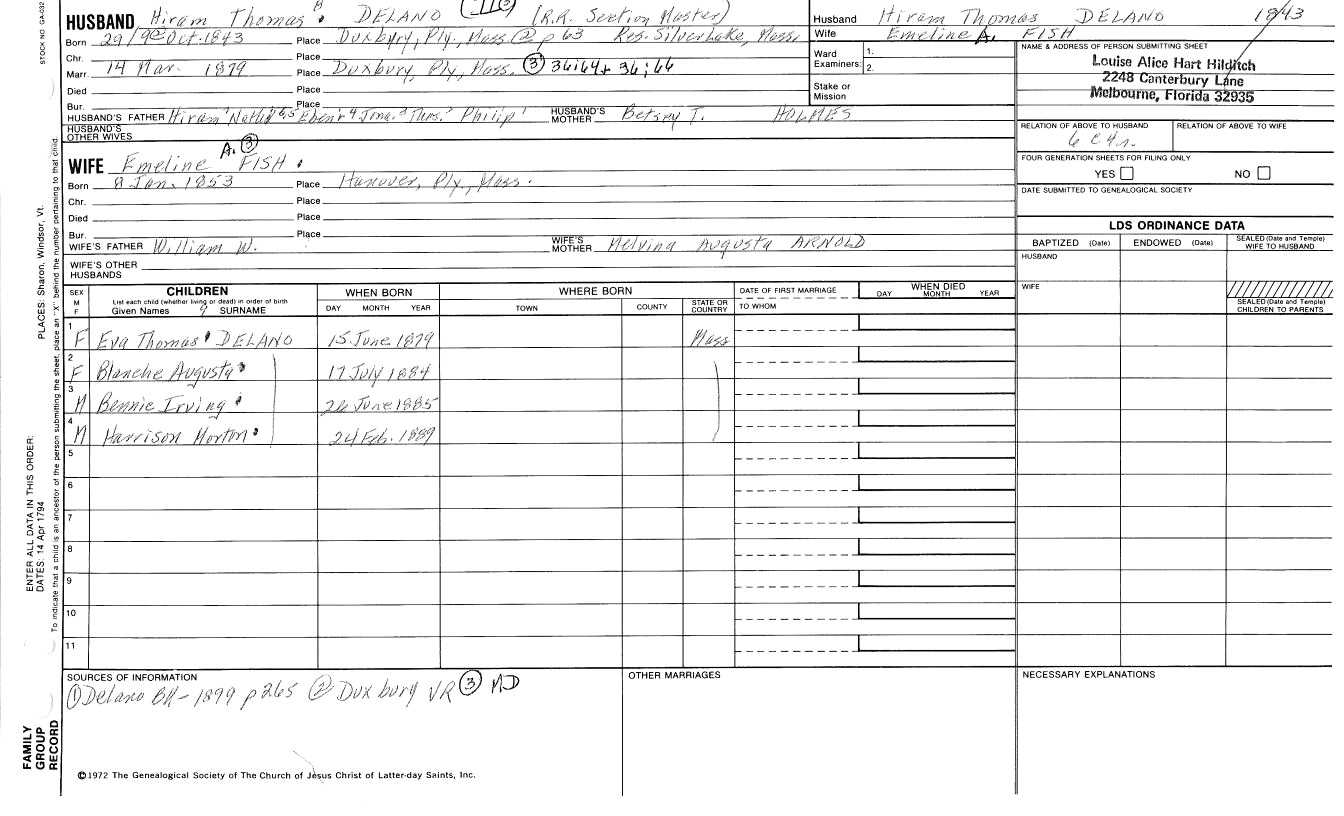 STOCK NO. GA-032
HUSBAND Hiram Thomas DELANO (R.R. Section Master)
Born 29/9 Oct. 1843 Place Duxbury, Ply., Mass. ② p 63 Res. Silver Lake, Mass.
Chr. Place
Marr. 14 Mar. 1879 Place Duxbury, Ply, Mass. ③ 36:64 + 36:66
Died Place
Bur. Place
HUSBAND'S FATHER Hiram Nath'l Eben'r Jona. Thos. Philip HUSBAND'S MOTHER Betsey T. HOLMES
HUSBAND'S OTHER WIVES
WIFE Emeline A. ③ FISH
Born 8 Jan. 1853 Place Hanover, Ply., Mass.
Chr. Place
Died Place
Bur. Place
WIFE'S FATHER William W. WIFE'S MOTHER Melvina Augusta ARNOLD
WIFE'S OTHER HUSBANDS
Husband Hiram Thomas DELANO 1843
Wife Emeline A. FISH
Ward Examiners: 1.
2.
Stake or Mission
NAME & ADDRESS OF PERSON SUBMITTING SHEET
Louise Alice Hart Hilditch
2248 Canterbury Lane
Melbourne, Florida 32935
RELATION OF ABOVE TO HUSBAND RELATION OF ABOVE TO WIFE
FOUR GENERATION SHEETS FOR FILING ONLY
YES NO
DATE SUBMITTED TO GENEALOGICAL SOCIETY
LDS ORDINANCE DATA
BAPTIZED (Date) ENDOWED (Date) SEALED (Date and Temple) WIFE TO HUSBAND
HUSBAND
WIFE
SEALED (Date and Temple) CHILDREN TO PARENTS
SEX M F
CHILDREN
List each child (whether living or dead) in order of birth
Given Names SURNAME
WHEN BORN
DAY MONTH YEAR
WHERE BORN
TOWN COUNTY STATE OR COUNTRY
DATE OF FIRST MARRIAGE
TO WHOM
WHEN DIED
DAY MONTH YEAR
1 F Eva Thomas DELANO 15 June 1879 Mass
2 F Blanche Augusta 17 July 1884
3 M Bennie Irving 26 June 1885
4 M Harrison Morton 24 Feb. 1889
5
6
7
8
9
10
11
SOURCES OF INFORMATION
① Delano BK - 1899 p 265 ② Duxbury VR ③ MD
OTHER MARRIAGES
NECESSARY EXPLANATIONS
©1972 The Genealogical Society of The Church of Jesus Christ of Latter-day Saints, Inc.
PLACES: Sharon, Windsor, Vt.
ENTER ALL DATA IN THIS ORDER:
DATES: 14 Apr 1794
To indicate that a child is an ancestor of the person submitting the sheet, place an "X" behind the number pertaining to that child.
FAMILY GROUP RECORD